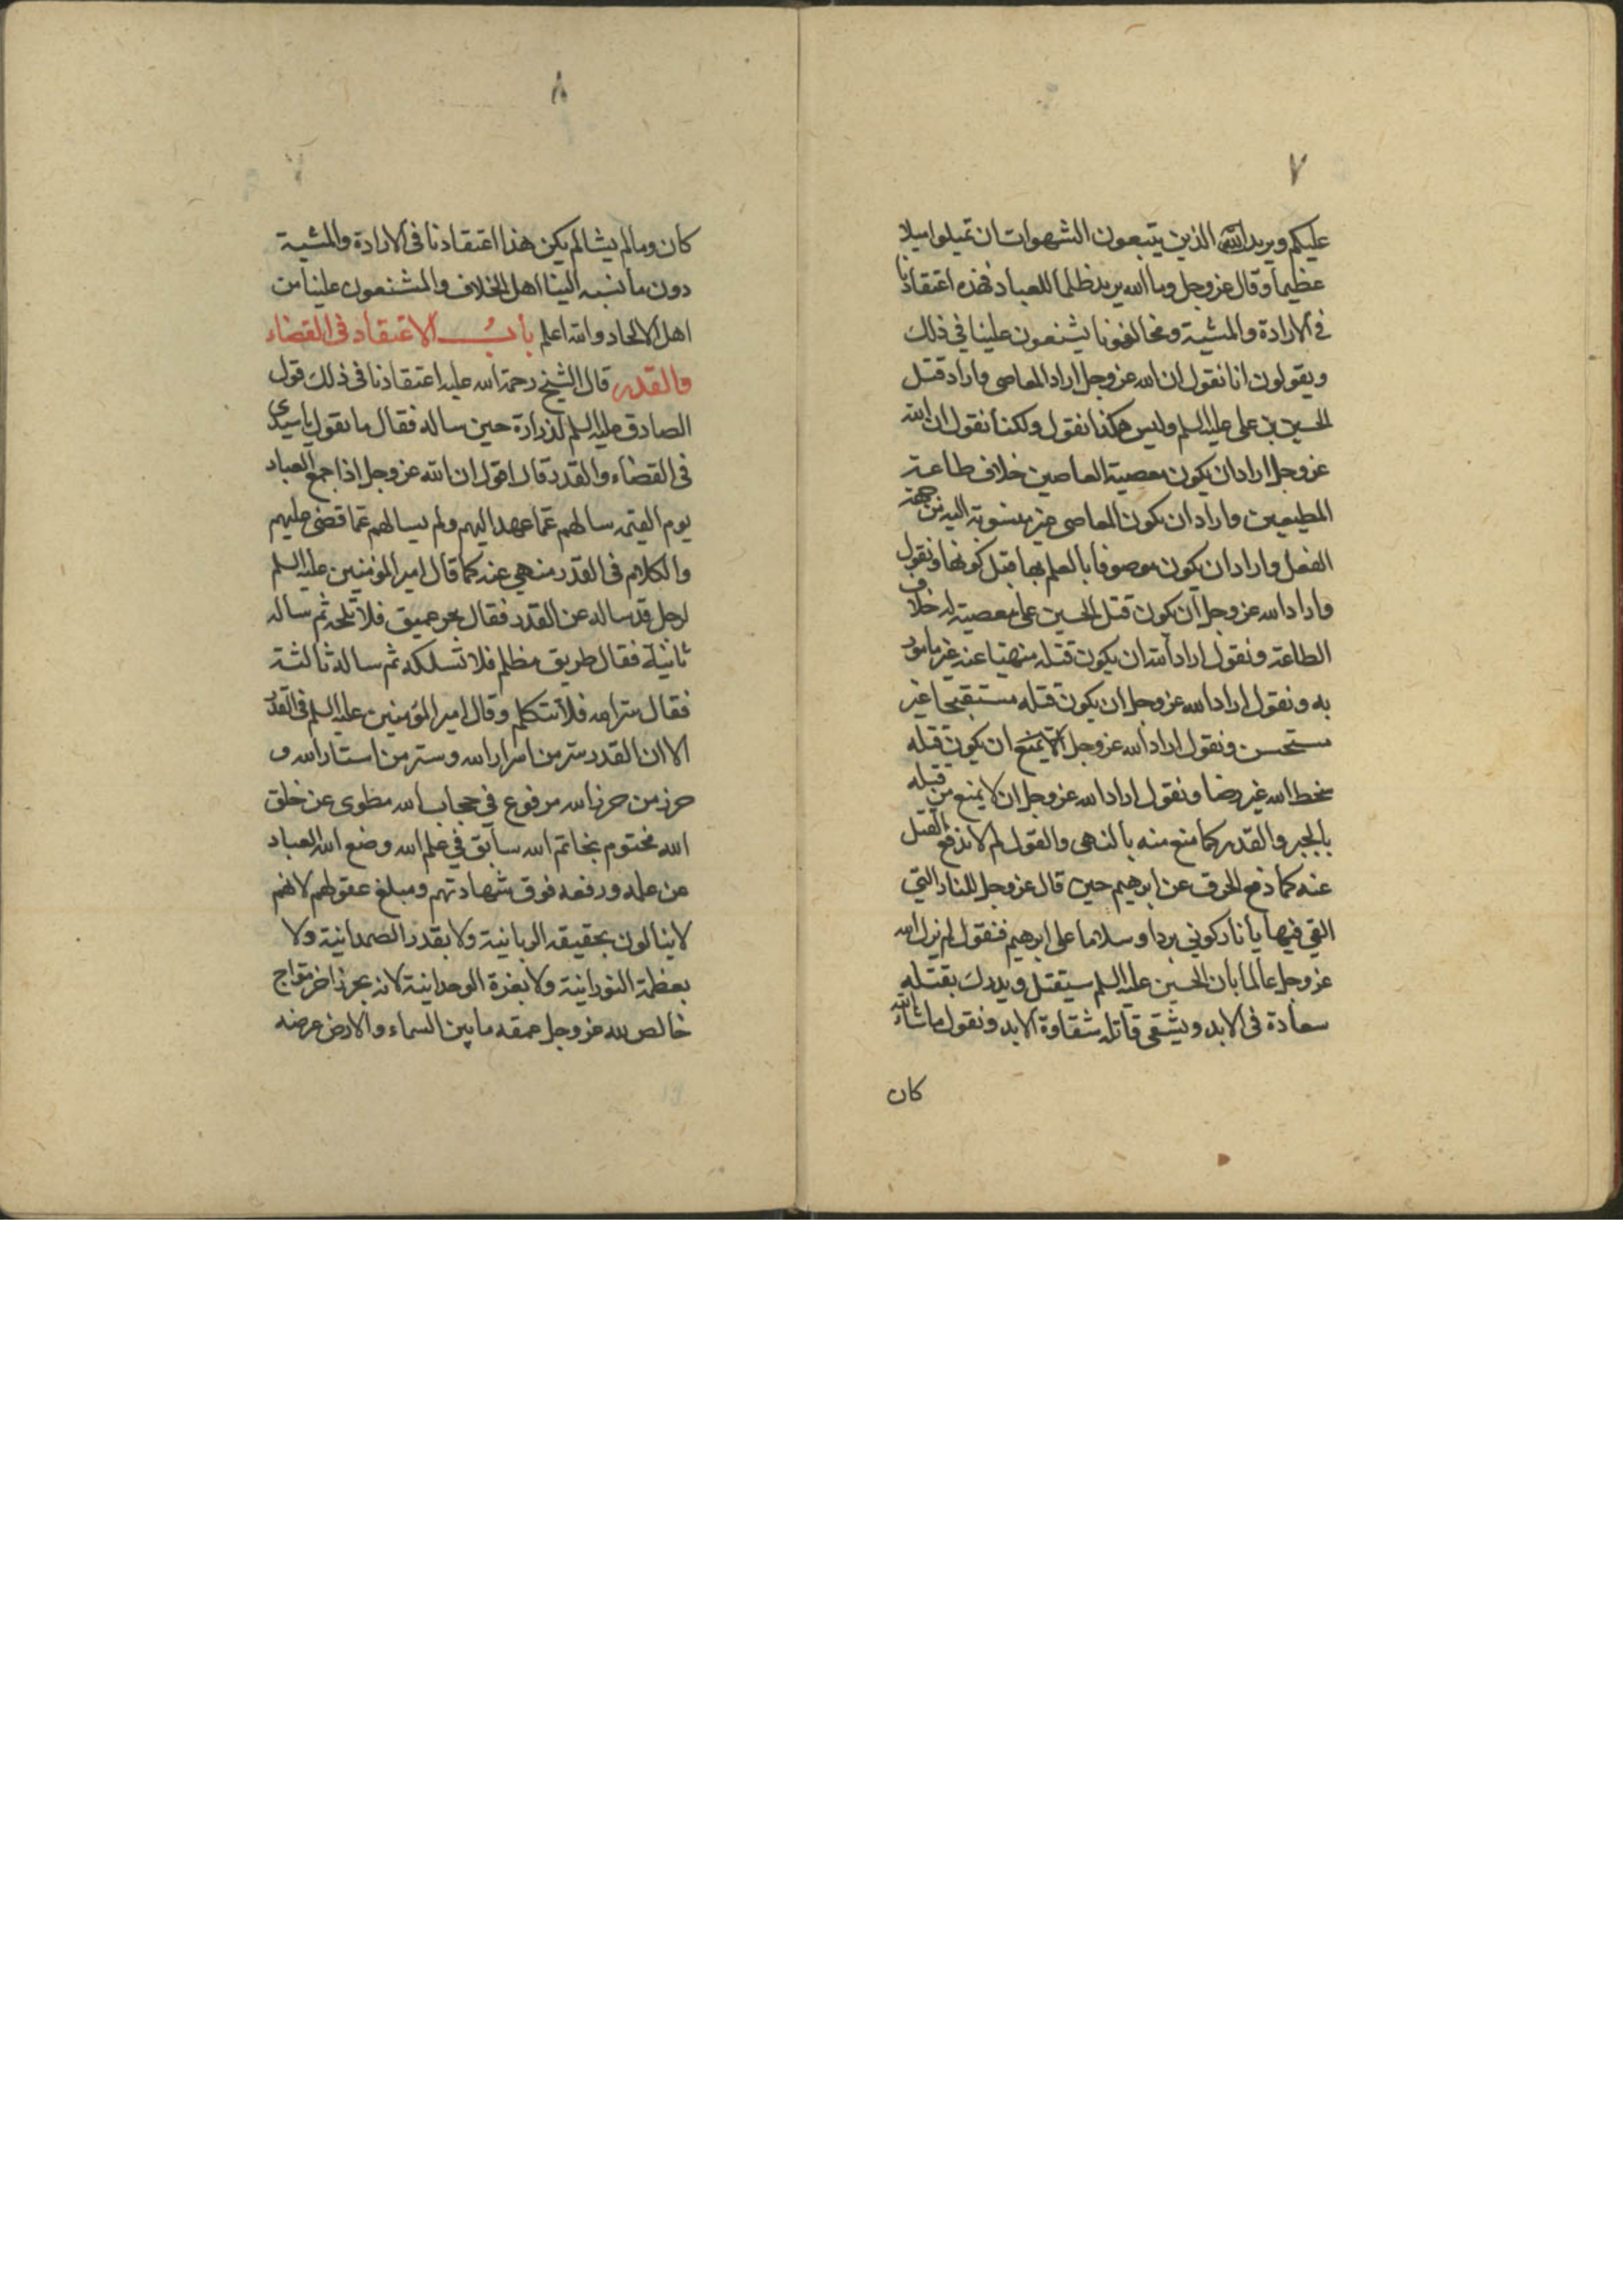 ٧
عليكم ويريد الله الذين يتبعون الشهوات ان تميلوا ميلا
عظيما وقال عز وجل وما الله يريد ظلما للعباد فهذه اعتقادنا
في الارادة والمشية ومخالفونا يشنعون علينا في ذلك
ويقولون انا نقول ان الله عز وجل اراد المعاصي واراد قتل
الحسين بن علي عليه السلم وليس هكذا نقول ولكنا نقول ان الله
عز وجل اراد ان يكون معصية العاصين خلاف طاعة
المطيعين واراد ان يكون المعاصي غير منسوبة اليه من جهة
الفعل واراد ان يكون موصوفا بالعلم بها قبل كونها ونقول
واراد الله عز وجل ان يكون قتل الحسين علي معصية له خلاف
الطاعة ونقول اراد الله ان يكون قتله منهيا عنه غير مامور
به ونقول اراد الله عز وجل ان يكون قتله مستقبحا غير
مستحسن ونقول اراد الله عز وجل الا يمنع ان يكون قتله
سخط الله غير رضا ونقول اراد الله عز وجل ان لا يمنع من قتله
بالجبر والقدر كما منع منه بالنهي والقول لم لا ندفع القتل
عنه كما دفع الحرق عن ابرهيم حين قال عز وجل للنار التي
القي فيها يا نار كوني بردا وسلاما على ابرهيم فنقول لم نزل الله
عز وجل عالما بان الحسين عليه السلم سيقتل ويدرك بقتله
سعادة في الابد ويشقى قاتله شقاوة الابد ونقول ما شاء الله
كان
٨
كان وما لم يشا لم يكن هذا اعتقادنا في الارادة والمشية
دون ما نسبه الينا اهل الخلاف والمشنعون علينا من
اهل الالحاد والله اعلم باب الاعتقاد في القضاء
والقدر قال الشيخ رحمة الله عليه اعتقادنا في ذلك قول
الصادق عليه السلم لزرارة حين ساله فقال ما تقول يا سيدي
في القضاء والقدر قال اقول ان الله عز وجل اذا جمع العباد
يوم القيمه سالهم عما عهد اليهم ولم يسالهم عما قضى عليهم
والكلام في القدر منهي عنه كما قال امير المؤمنين عليه السلم
لرجل قد ساله عن القدر فقال بحر عميق فلا تلجه ثم ساله
ثانية فقال طريق مظلم فلا تسلكه ثم ساله ثالثة
فقال سر الله فلا تتكلم وقال امير المؤمنين عليه السلم في القدر
الا ان القدر سر من اسرار الله وستر من استار الله و
حرز من حرز الله مرفوع في حجاب الله مطوي عن خلق
الله مختوم بخاتم الله سابق في علم الله وضع الله العباد
عن علمه ورفعه فوق شهادتهم ومبلغ عقولهم لانهم
لا ينالون بحقيقه الربانية ولا بقدر الصمدانية ولا
بعظمة النورانية ولا بعزة الوحدانية لانه بحر زاخر مواج
خالص لله عز وجل عمقه ما بين السماء والارض عرضه